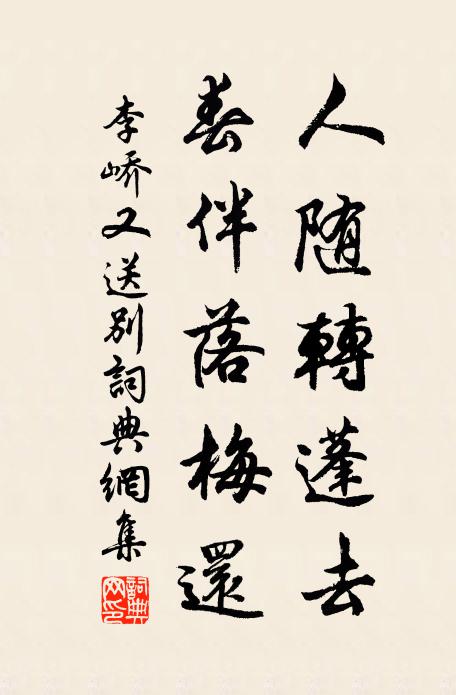 人随轉蓬去
春伴落梅還
李嶠又送别詞典網集
詞典網印